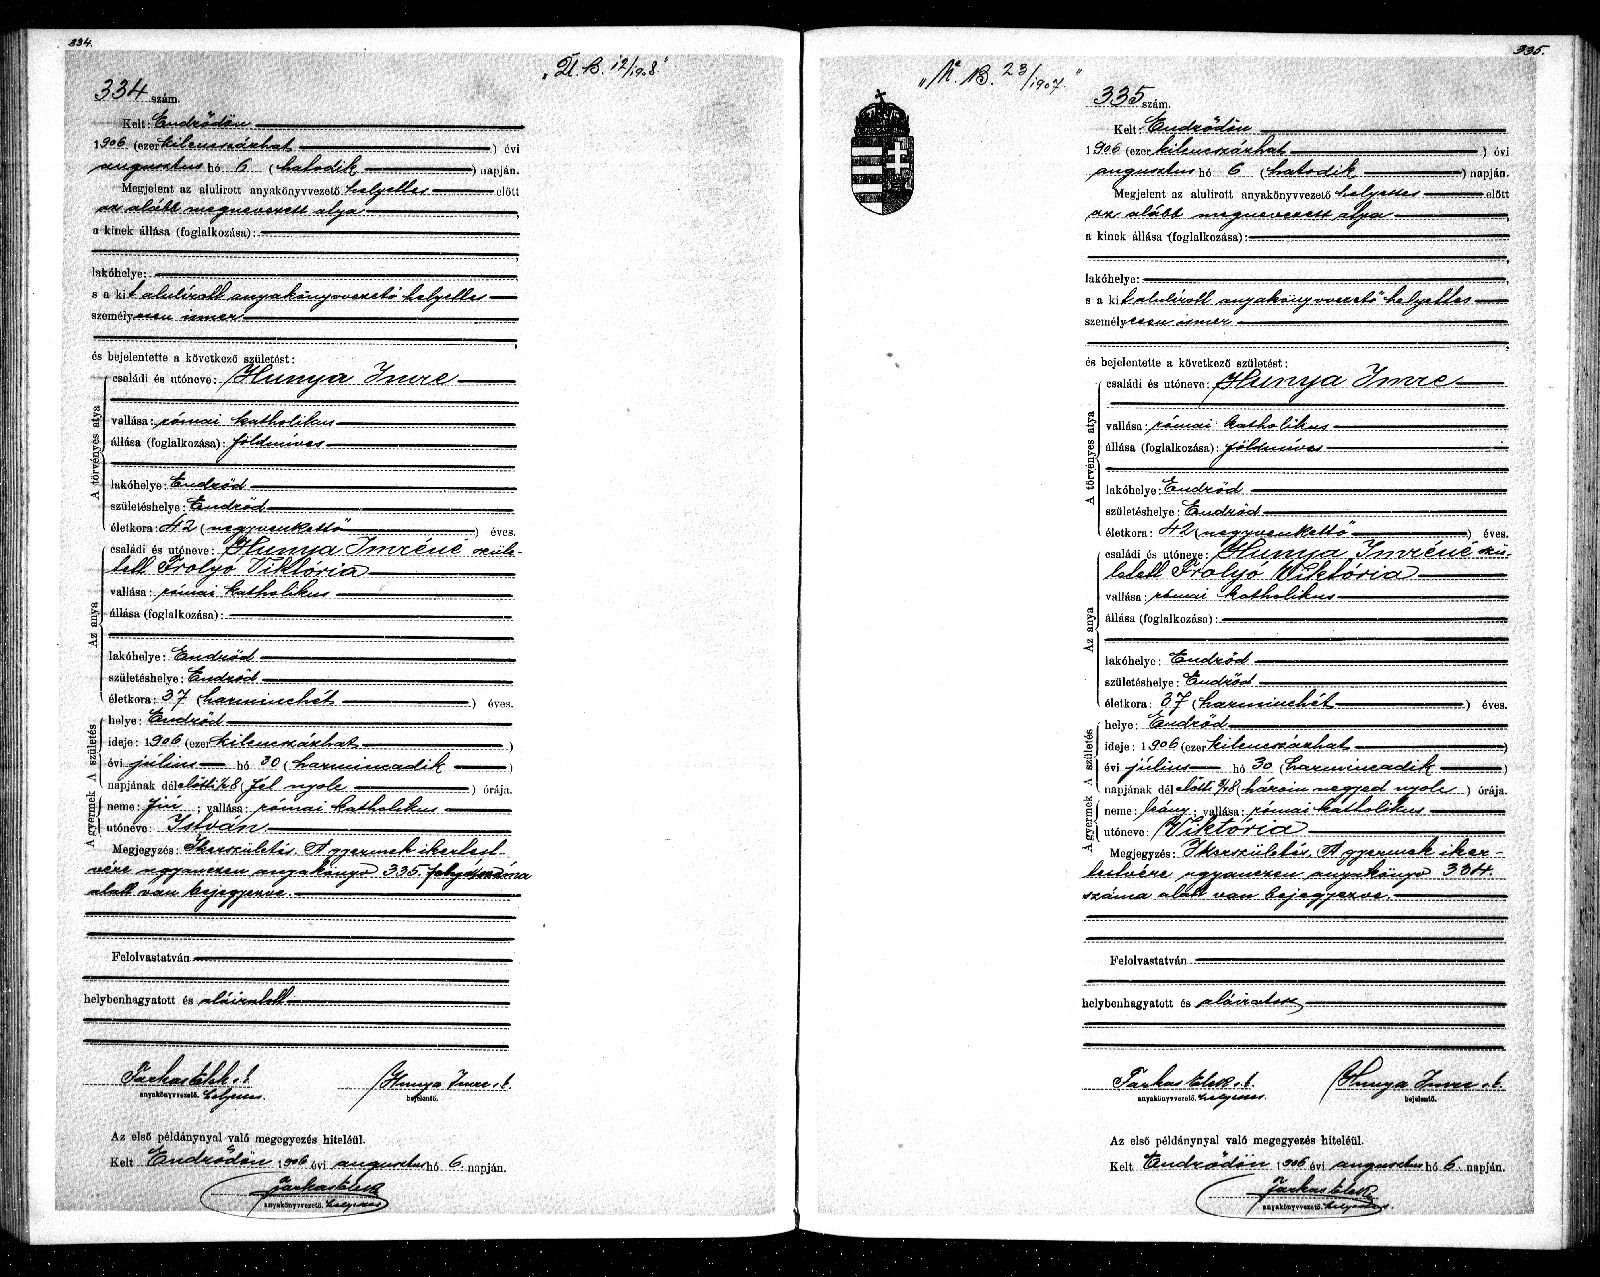 334.
„U. B. 12/1908."
334 szám.
Kelt: Endrődön
1906 (ezer kilenczszázhat ) évi
augusztus hó 6 (hatodik ) napján.
Megjelent az alulirott anyakönyvvezető helyettes előtt
az alább megnevezett atya ,
a kinek állása (foglalkozása):
,
lakóhelye:
s a kit alulirott anyakönyvvezető helyettes
személyesen ismer
,
és bejelentette a következő születést:
A törvényes atya
családi és utóneve: Hunya Imre
vallása: római katholikus
állása (foglalkozása): földmíves
lakóhelye: Endrőd
születéshelye: Endrőd
életkora: 42 (negyvenkettő ) éves.
Az anya
családi és utóneve: Hunya Imréné szüle-
tett Frolyó Viktória
vallása: római katholikus
állása (foglalkozása):
lakóhelye: Endrőd
születéshelye: Endrőd
életkora: 37 (harminchét ) éves.
A születés
helye: Endrőd
ideje: 1906 (ezer kilenczszázhat )
évi július hó 30 (harminczadik )
napjának délelőtti ½8 (fél nyolc ) órája.
A gyermek
neme: fiú ; vallása: római katholikus
utóneve: István
Megjegyzés: Ikerszületés. A gyermek ikertest-
vére ugyanezen anyakönyv 335. folyószáma
alatt van bejegyezve.
Felolvastatván
helybenhagyatott és aláiratott
Farkas Elek s. k. Hunya Imre s. k.
anyakönyvvezető. helyettes. bejelentő.
Az első példánynyal való megegyezés hiteléül.
Kelt Endrődön 1906 évi augusztus hó 6. napján.
Farkas Elek
anyakönyvvezető. helyettes
335.
„U. B. 23/1907."
335 szám.
Kelt: Endrődön
1906 (ezer kilenczszázhat ) évi
augusztus hó 6 (hatodik ) napján.
Megjelent az alulirott anyakönyvvezető helyettes előtt
az alább megnevezett atya ,
a kinek állása (foglalkozása):
,
lakóhelye: ,
s a kit alulirott anyakönyvvezető helyettes
személyesen ismer
,
és bejelentette a következő születést:
A törvényes atya
családi és utóneve: Hunya Imre
vallása: római katholikus
állása (foglalkozása): földmíves
lakóhelye: Endrőd
születéshelye: Endrőd
életkora: 42 (negyvenkettő ) éves.
Az anya
családi és utóneve: Hunya Imréné szü-
letett Frolyó Viktória
vallása: római katholikus
állása (foglalkozása):
lakóhelye: Endrőd
születéshelye: Endrőd
életkora: 37 (harminchét ) éves.
A születés
helye: Endrőd
ideje: 1906 (ezer kilenczszázhat )
évi július hó 30 (harminczadik )
napjának délelőtti ¾8 (három negyed nyolc ) órája.
A gyermek
neme: leány; vallása: római katholikus
utóneve: Viktória
Megjegyzés: Ikerszületés. A gyermek iker-
testvére ugyanezen anyakönyv 334.
száma alatt van bejegyezve.
Felolvastatván
helybenhagyatott és aláiratott
Farkas Elek s. k. Hunya Imre s. k.
anyakönyvvezető. helyettes. bejelentő.
Az első példánynyal való megegyezés hiteléül.
Kelt Endrődön 1906 évi augusztus hó 6 napján.
Farkas Elek
anyakönyvvezető. helyettes.